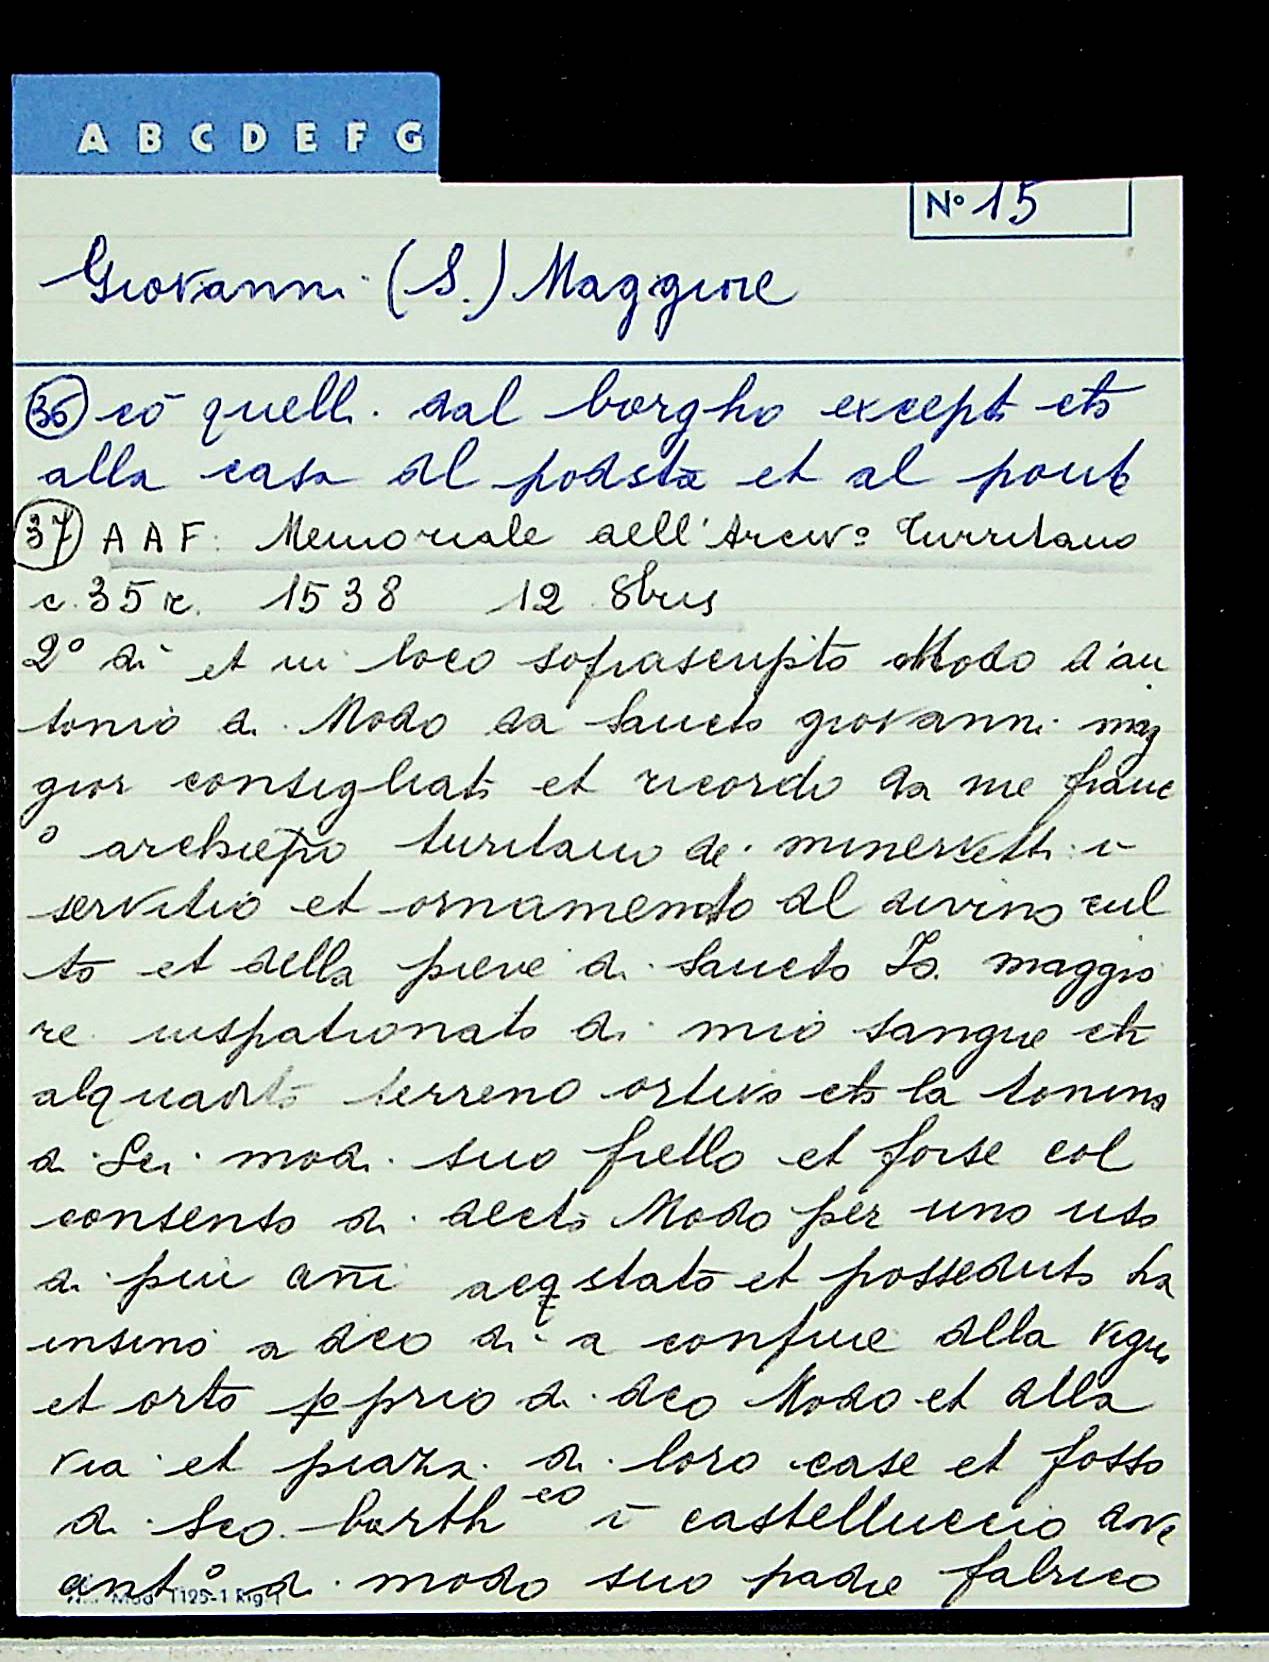 A B C D E F G
N° 15
Giovanni (S.) Maggiore
36 cō quelli dal borgho except etō
alla casa del podstà et al ponte
37 AAF: Memoriale dell'Arciv° Turritano
c. 35 r. 1538 12 8bris
2° dì et in loco soprascripto Modo d'an
tonio di Modo da Sancto giovanni mag
gior consigliato et ricordo da me franc
° archiepo turitano de minervetti ī
servitio et ornamento del divino cul
to et della pieve di Sancto Io. maggio
re iuspatronato di mio sangue et
alquanto terreno ortivo etō la tonino
di Sei modi suo frello et forse col
consenso di decto Modo per uno uso
di più anni acqstato et posseduto ha
insino a dco dì a confine della vigna
et orto pprio di dco Modo et della
via et piaza di loro case et fosso
di Sco barth eo ī castelluccio dove
ant° di modo suo padre fabrico
Mod 1125-1 Rig 1